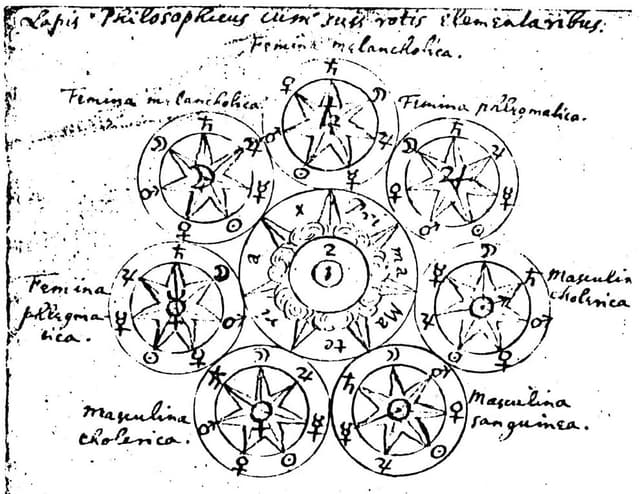 Lapis Philosophicus cum suis rotis elementaribus.
Femina melancholica.
Femina melancholica
Femina phlegmatica.
Femina
phlegma
tica.
Masculina
cholerica
Masculina
cholerica.
Masculina
sanguinea.
x Pri ma Ma te ri a
2
1